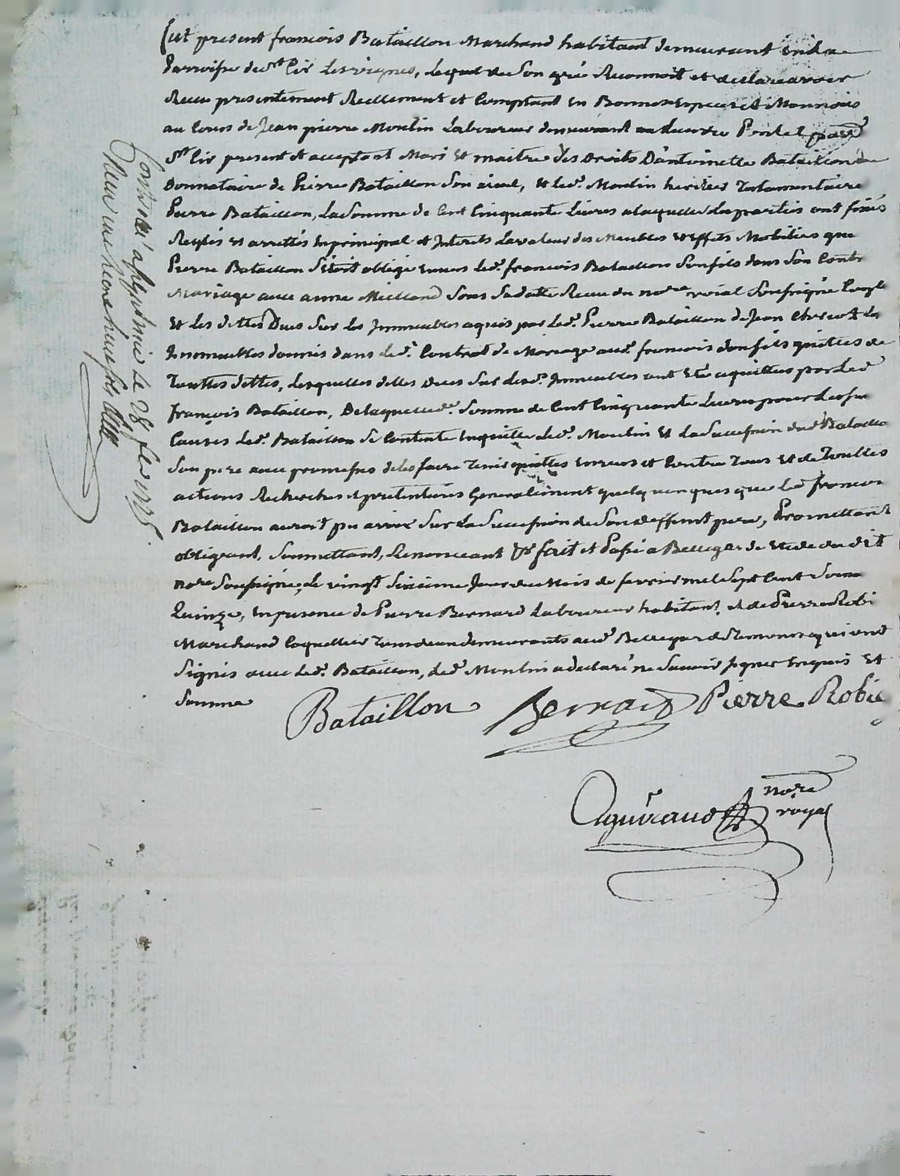 fut present francois Bataillon Marchand habitant demeurant en la
parroisse de st Cir Les vignes, Lequel de son gré Reconnoit et declare avoir
Receu presentement Reellement et Comptant en Bonnes especes et Monnoie
au Cours de Jean pierre Moulin Laboureur demeurant au
st Cir present et acceptant Mari et maitre des Droits D'antoinette Bataillon
Donnataire de Pierre Bataillon son aieul, et led. Moulin heritier Testamentaire
Pierre Bataillon, La somme de Cent Cinquante Livres a laquelle les parties ont fixés
Reglés et arrettés en principal et Interets La valeur des Meubles et effets Mobiliers que
Pierre Bataillon s'etoit obligé envers led. francois Bataillon son fils dans son Contr
Mariage avec anne Milland sous sa datte Receu du nore roial soussigné
Et les dettes Dues sur les Immeubles aquis par led. Pierre Bataillon de Jean
Immeubles donnés dans led. Contrat de Mariage aud. francois son fils quittes de
Touttes dettes, lesquelles dettes Dues sur lesd. Immeubles ont eté aquittées par led
francois Bataillon, De laquelle d. somme de Cent Cinquante Livres pour les
Causes led. Bataillon se Contente en quitte led. Moulin et La succession dud Bataillon
son pere avec promesse de les faire tenir quittes envers et Contre Tous et de Touttes
actions Recherches et pretentions Generalement quelquonques que led francois
Bataillon auroit pu avoir sur La succession de son deffunt pere, Promettant
obligeant, soumettant, Renonceant fait et Passé a Bellegarde etude du dit
nore soussigné, le vingt sixieme Jour du Mois de fevrier mil sept Cent soixa
Quinze, en presence de Pierre Bernard Laboureur habitant, et de Pierre Robi
Marchand Coquetier tous deux demeurants aud. Bellegarde Temoins qui ont
signés avec led. Bataillon, led. Moulin a declaré ne savoir signer enquis et
sommé
Bataillon Bernard Pierre Robie
nore
roya
Controlé a le 28 fev 1775